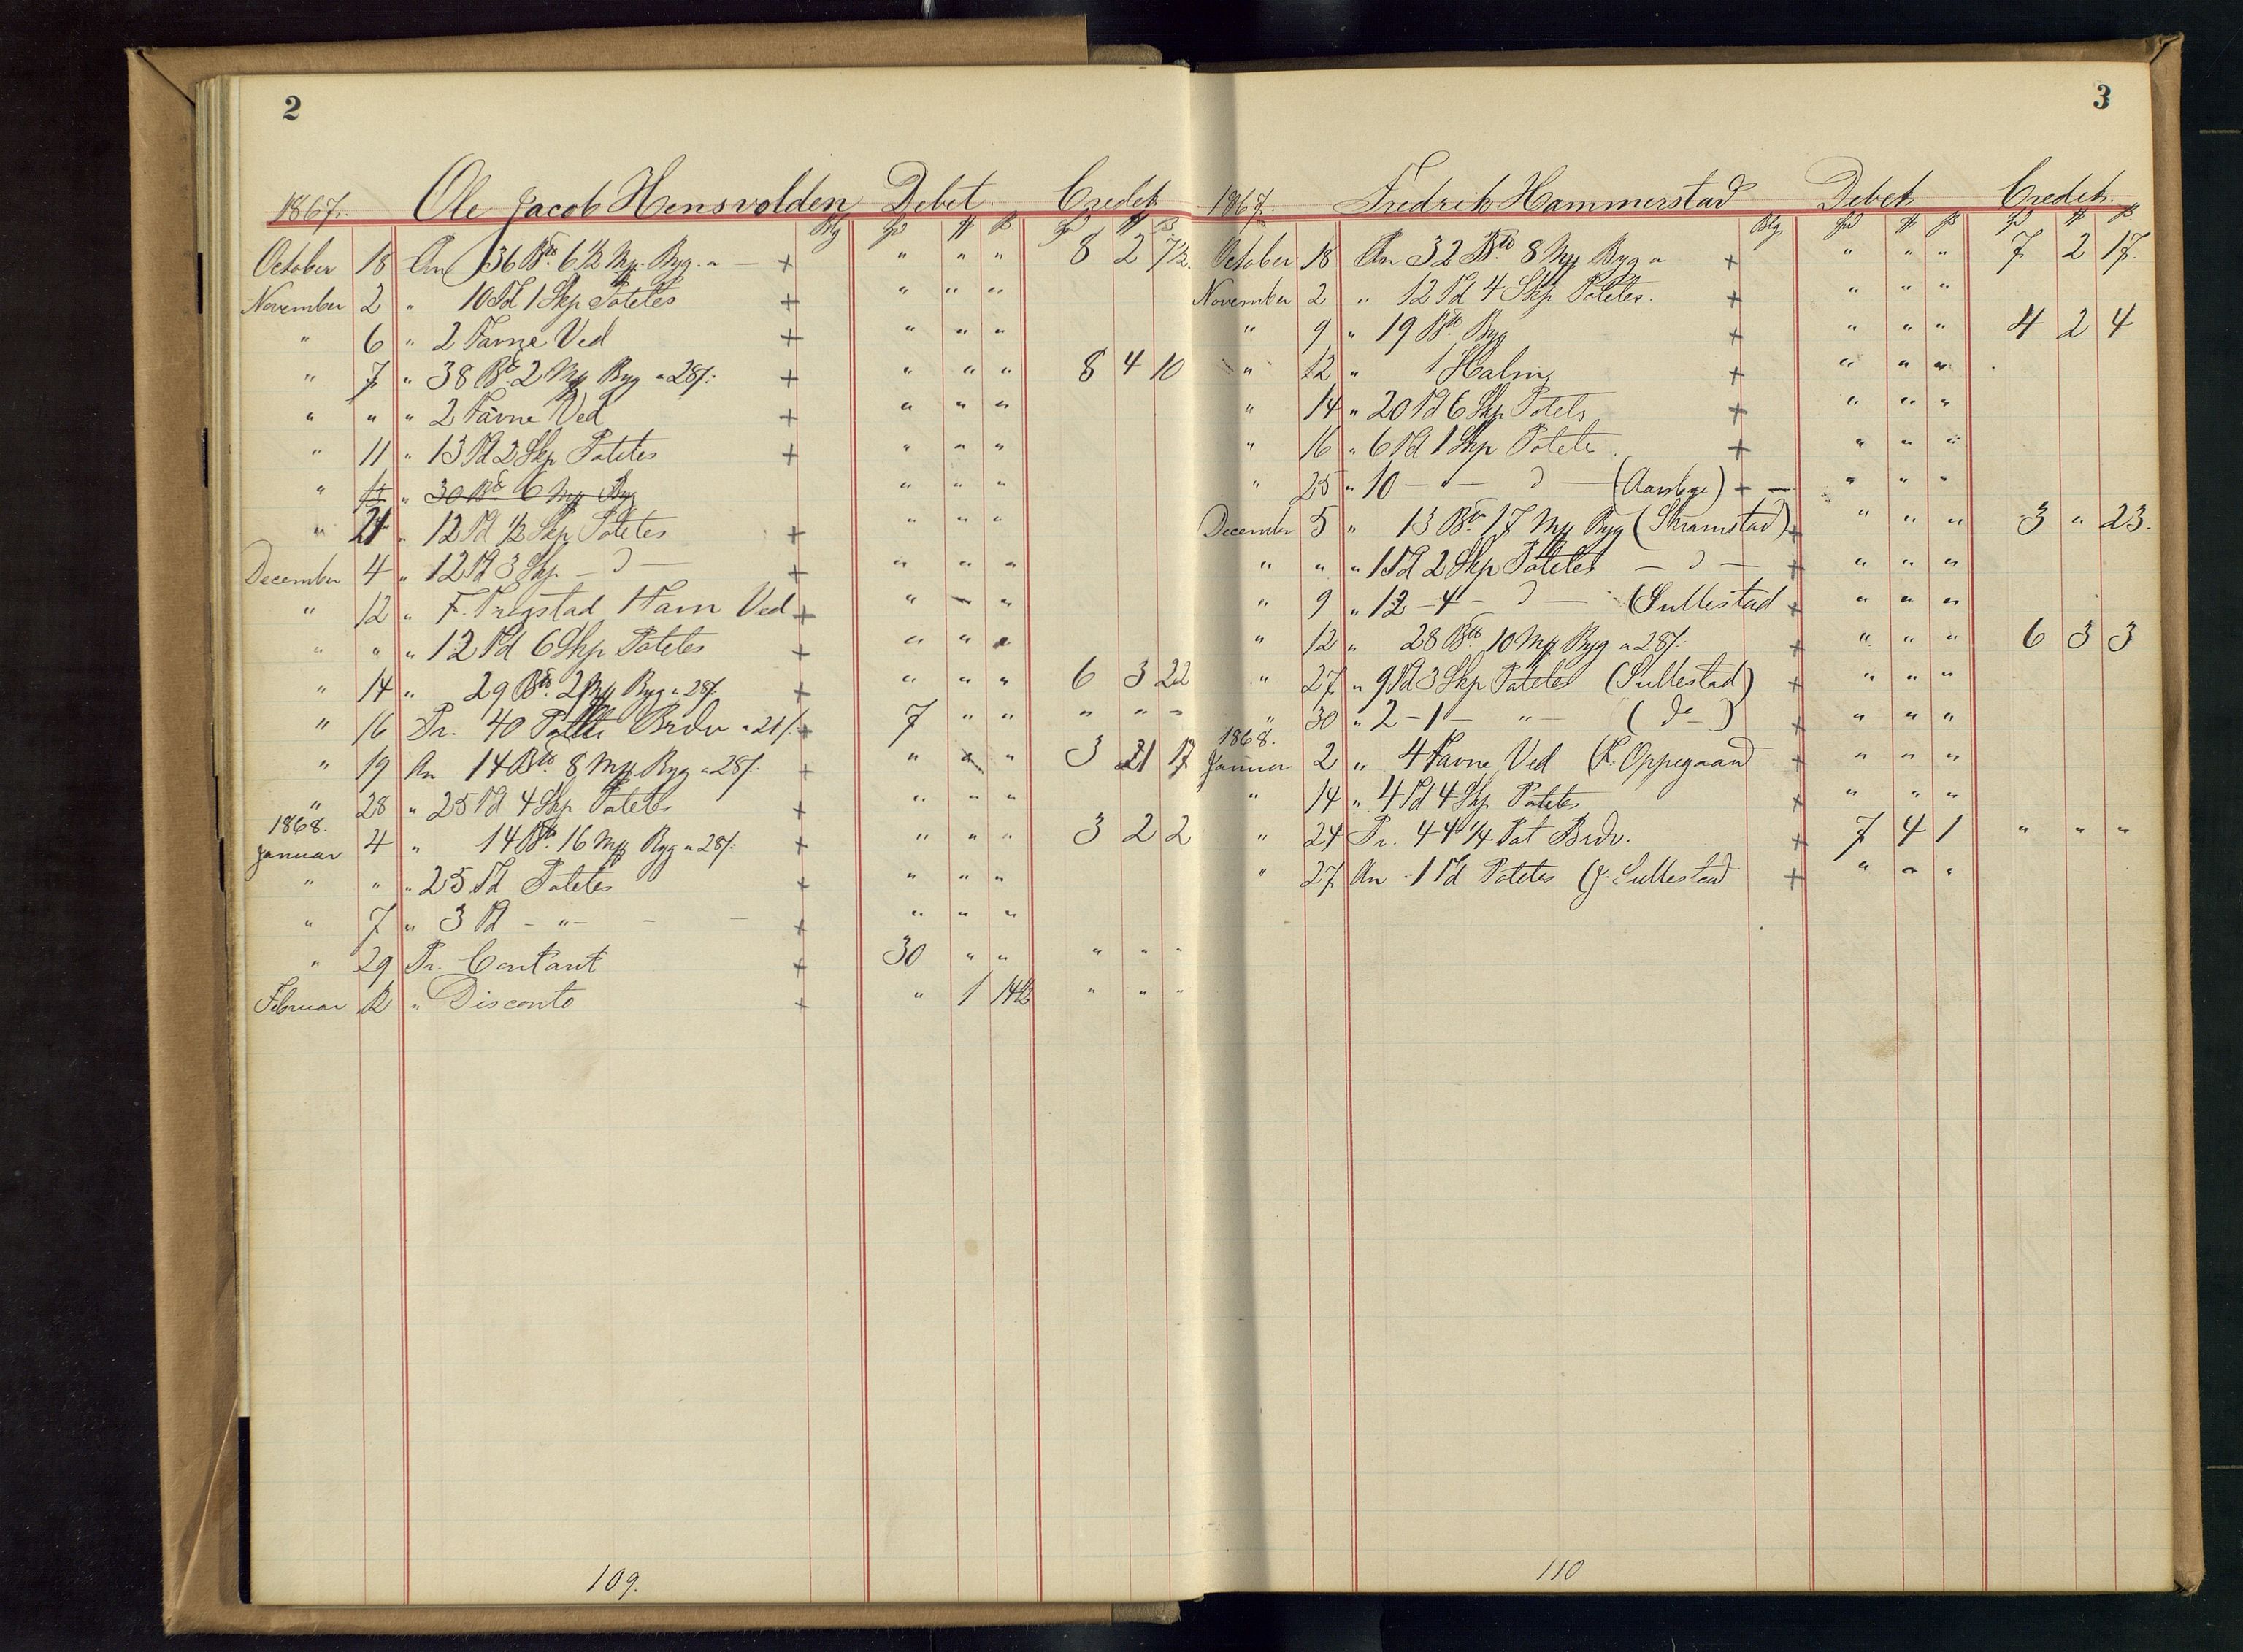 2
1867. Ole Jacob Hensvolden Debet. Credet
October 18 An 36 Bd. 6½ Mk. Byg. a — + " " " 8 2 7½.
November 2 " 10 Td 1 Skp Potetes + " " "
" 6 " 2 Favne Ved + " " "
" 7 " 38 Bd. 2 Mk Byg a 28/: + " " " 8 4 10
" " " 2 Favne Ved + " " "
" 11 " 13 Td 2 Skp Potetes + " " "
" " 30 Bd 6 Mk Byg " " "
" 21 " 12 Td ½ Skp Potetes + " " "
December 4 " 12 Td 3 Skp — " — + " " "
" 12 " F. Trogstad 1 Favn Ved + " " "
" " " 12 Td 6 Skp Potetes + " " "
" 14 " 29 Bd. 2 Mk Byg a 28/. + " " " 6 3 22
" 16 Pr. 40 Potter Brdv a 21/. + 7 " " " " "
" 19 An 14 Bd. 8 Mk Byg a 28/. + " " " 3 21 17
" 28 " 25 Td 4 Skp Potetes + " " "
1868.
Januar 4 " 14 Bd. 16 Mk Byg a 28/: + " " " 3 2 2
" " " 25 Td Potetes + " " "
" 7 " 3 Td - " - - - + " " "
" 29 Pr. Contant + 30 " " " " "
Februar 12 " Disconto + " 1 14½ " " "
109.
3
1867. Fredrik Hammerstad Debet Credet.
October 18 An 32 Bd. 8 Mk Byg a + " " " 7 2 17.
November 2 " 12 Td 4 Skp Potetes. + " " "
" 9 " 19 Bd. Byg + " " " 4 2 4
" 12 " 1 Halm + " " "
" 14 " 20 Td 6 Skp Potets + " " "
" 16 " 6 Td 1 Skp Potets. + " " "
" 25 " 10 — " — " — ( ) + — " " "
December 5 " 13 Bd. 17 Mk Byg (Skramstad) + " " " 3 " 23.
" " " 1 Td 2 Skp Potetes — " — + " " "
" 9 " 12 - 4 - " — (Sullestad + " " "
" 12 " 28 Bd. 10 Mk Byg a 28/: + " " " 6 3 3
" 27 " 9 Td 3 Skp Potetes (Sullestad) + " " "
" 30 " 2 - 1 - " - ( do - ) + " " "
1868.
Januar 2 " 4 Favne Ved ( Oppegaard + " " "
" 14 " 4 Td 4 Skp Potetes + " " "
" 24 Pr. 44 ¼ Pot Brdv. + 7 4 1 " " "
" 27 An 1 Td Potetes (J. Sullestad + " " "
110